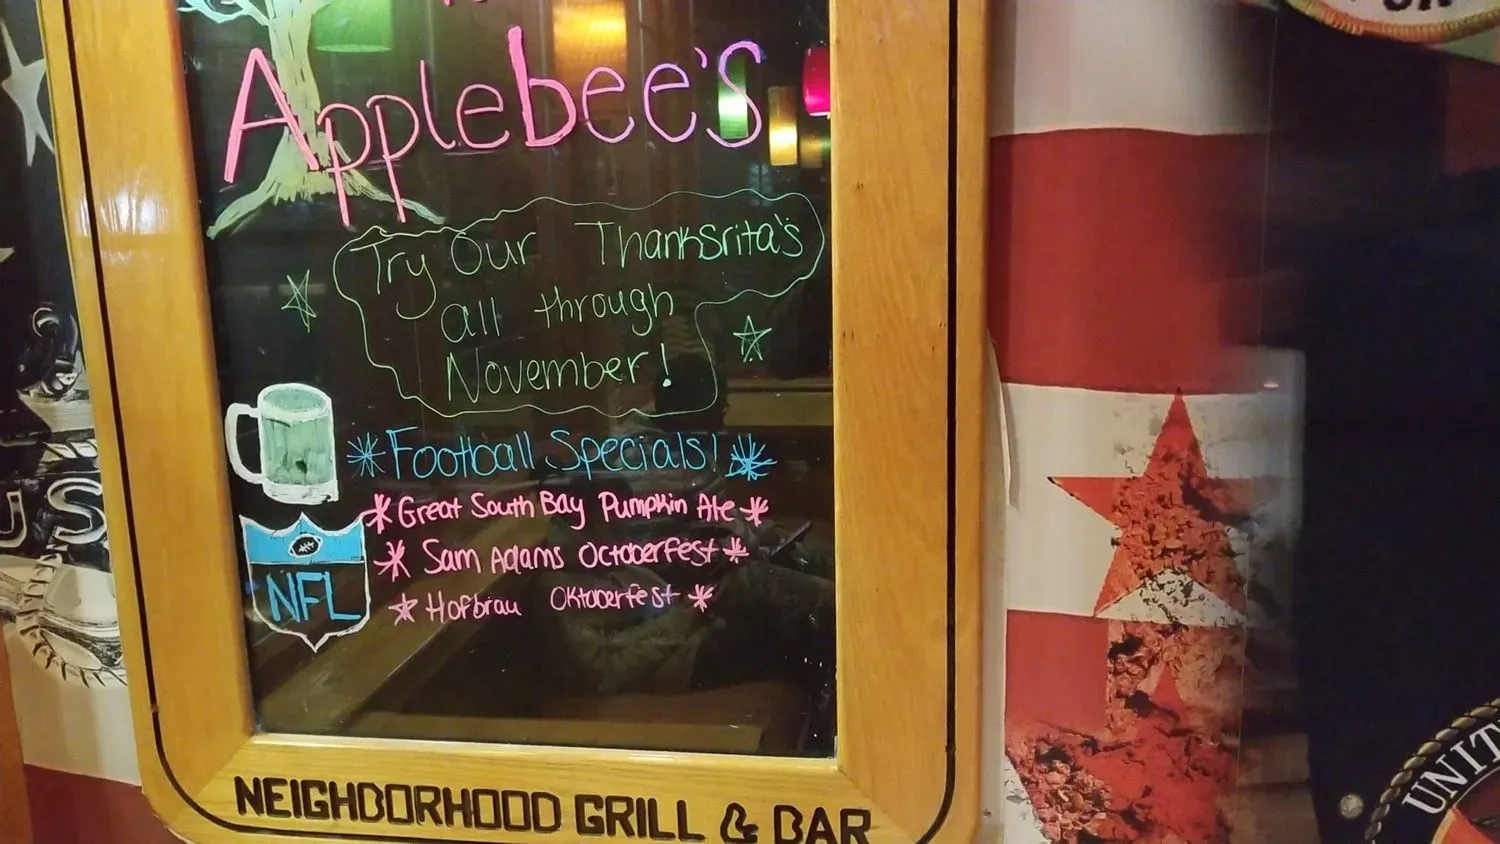 Applebee's
Try Our Thanksrita's
all through
November!
Football Specials!
Great South Bay Pumpkin Ale
Sam Adams Octoberfest
Hofbrau Oktoberfest
NFL
NEIGHBORHOOD GRILL & BAR
US
UNIT